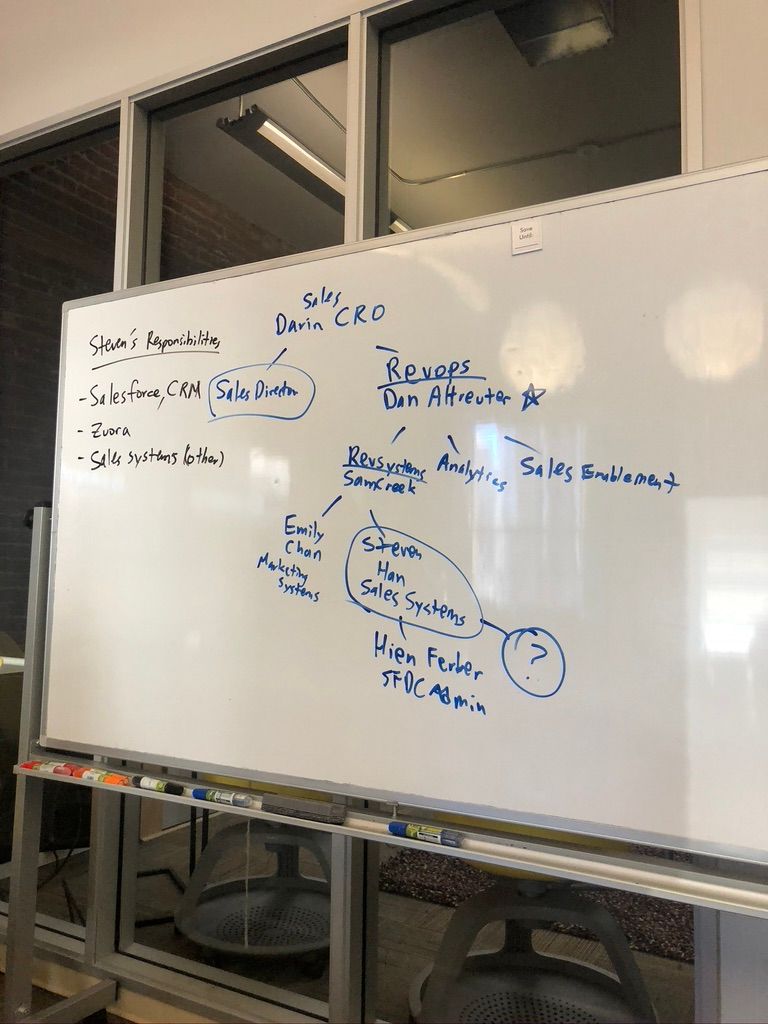 Save
Until:
Sales
Darin CRO
Steven's Responsibilities
- Salesforce, CRM
- Zuora
- Sales systems (other)
Sales Director
Revops
Dan Altreuter ☆
Revsystems
Sam Creek
Analytics
Sales Enablement
Emily
Chan
Marketing
Systems
Steven
Han
Sales Systems
?
Hien Ferber
SFDC Admin